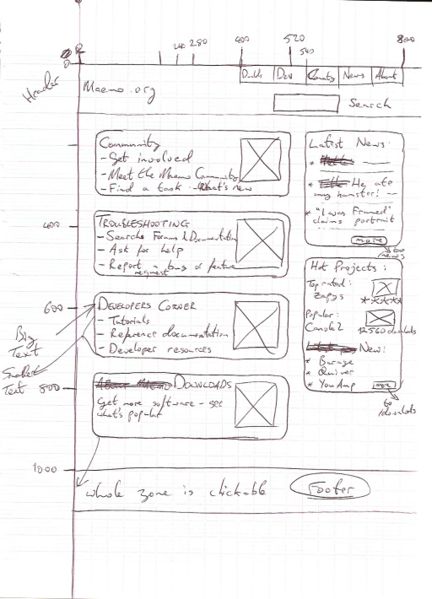 280
400
520
560
800
Downloads
Dev
County
News
About
Header
Maemo.org
Search
Community
- Get involved
- Meet the Maemo Community
- Find a task - What's new
Latest News:
* He ate
my hamster! -
* "I was framed"
claims portrait
more
Go
news
400
TROUBLESHOOTING
- Search Forums & Documentation
- Ask for help
- Report a bug or feature
request
Hot Projects:
Top rated:
Zapps
Popular:
Canola2
12560 downloads
New:
* Barage
* Quiver
* YouAmp
more
Go
downloads
600
DEVELOPERS CORNER
- Tutorials
- Reference documentation
- Developer resources
Big
Text
Smaller
Text
800
DOWNLOADS
Get more software - see
what's popular
1000
whole zone is clickable
Footer